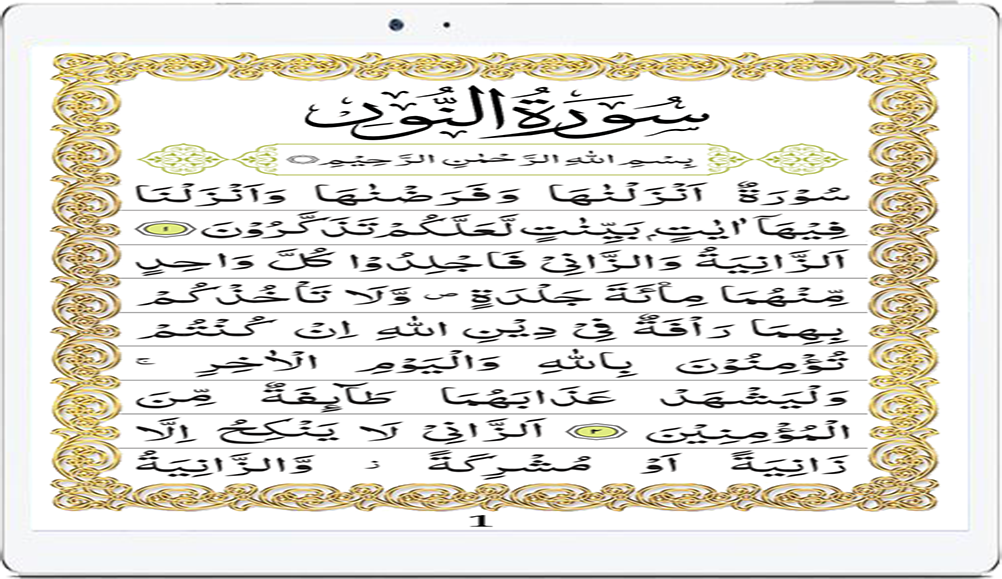 سُوْرَةُ النُّوْرِ
بِسْمِ اللهِ الرَّحْمٰنِ الرَّحِيْمِ
سُوْرَةٌ اَنْزَلْنٰهَا وَفَرَضْنٰهَا وَاَنْزَلْنَا
فِيْهَاۤ اٰيٰتٍۭ بَيِّنٰتٍ لَّعَلَّكُمْ تَذَكَّرُوْنَ ١
اَلزَّانِيَةُ وَالزَّانِيْ فَاجْلِدُوْا كُلَّ وَاحِدٍ
مِّنْهُمَا مِائَةَ جَلْدَةٍ ۖ وَّلَا تَاْخُذْكُمْ
بِهِمَا رَاْفَةٌ فِيْ دِيْنِ اللهِ اِنْ كُنْتُمْ
تُؤْمِنُوْنَ بِاللهِ وَالْيَوْمِ الْاٰخِرِ ۚ
وَلْيَشْهَدْ عَذَابَهُمَا طَآئِفَةٌ مِّنَ
الْمُؤْمِنِيْنَ ٢ اَلزَّانِيْ لَا يَنْكِحُ اِلَّا
زَانِيَةً اَوْ مُشْرِكَةً ز وَّالزَّانِيَةُ
1